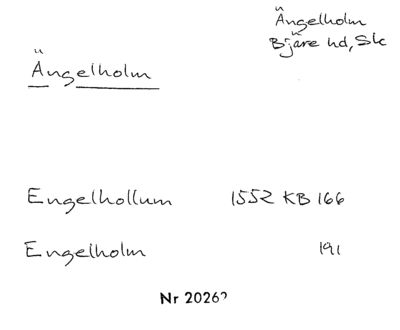 Ängelholm
Bjäre hd, Sk
Ängelholm
Engelhollum 1552 KB 166
Engelholm 191
Nr 20262